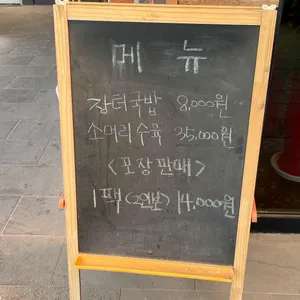 메 뉴
장터국밥 8,000원
소머리수육 35,000원
<포장판매>
1팩(2인분) 14,000원